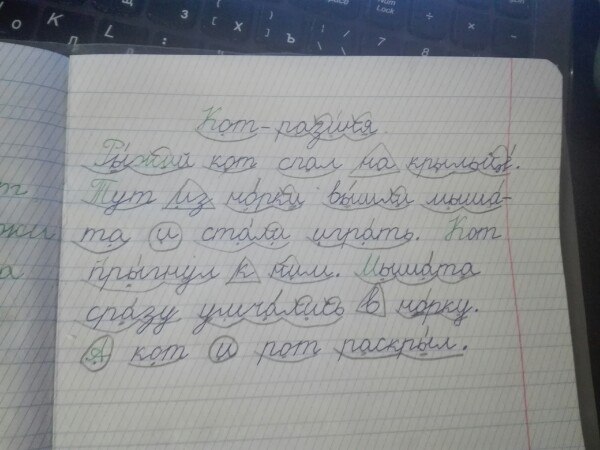 Кот-разиня.
Рыжий кот спал на крыльце.
Тут из норки вышли мыша-
та и стали играть. Кот
прыгнул к ним. Мышата
сразу умчались в норку.
А кот и рот раскрыл.